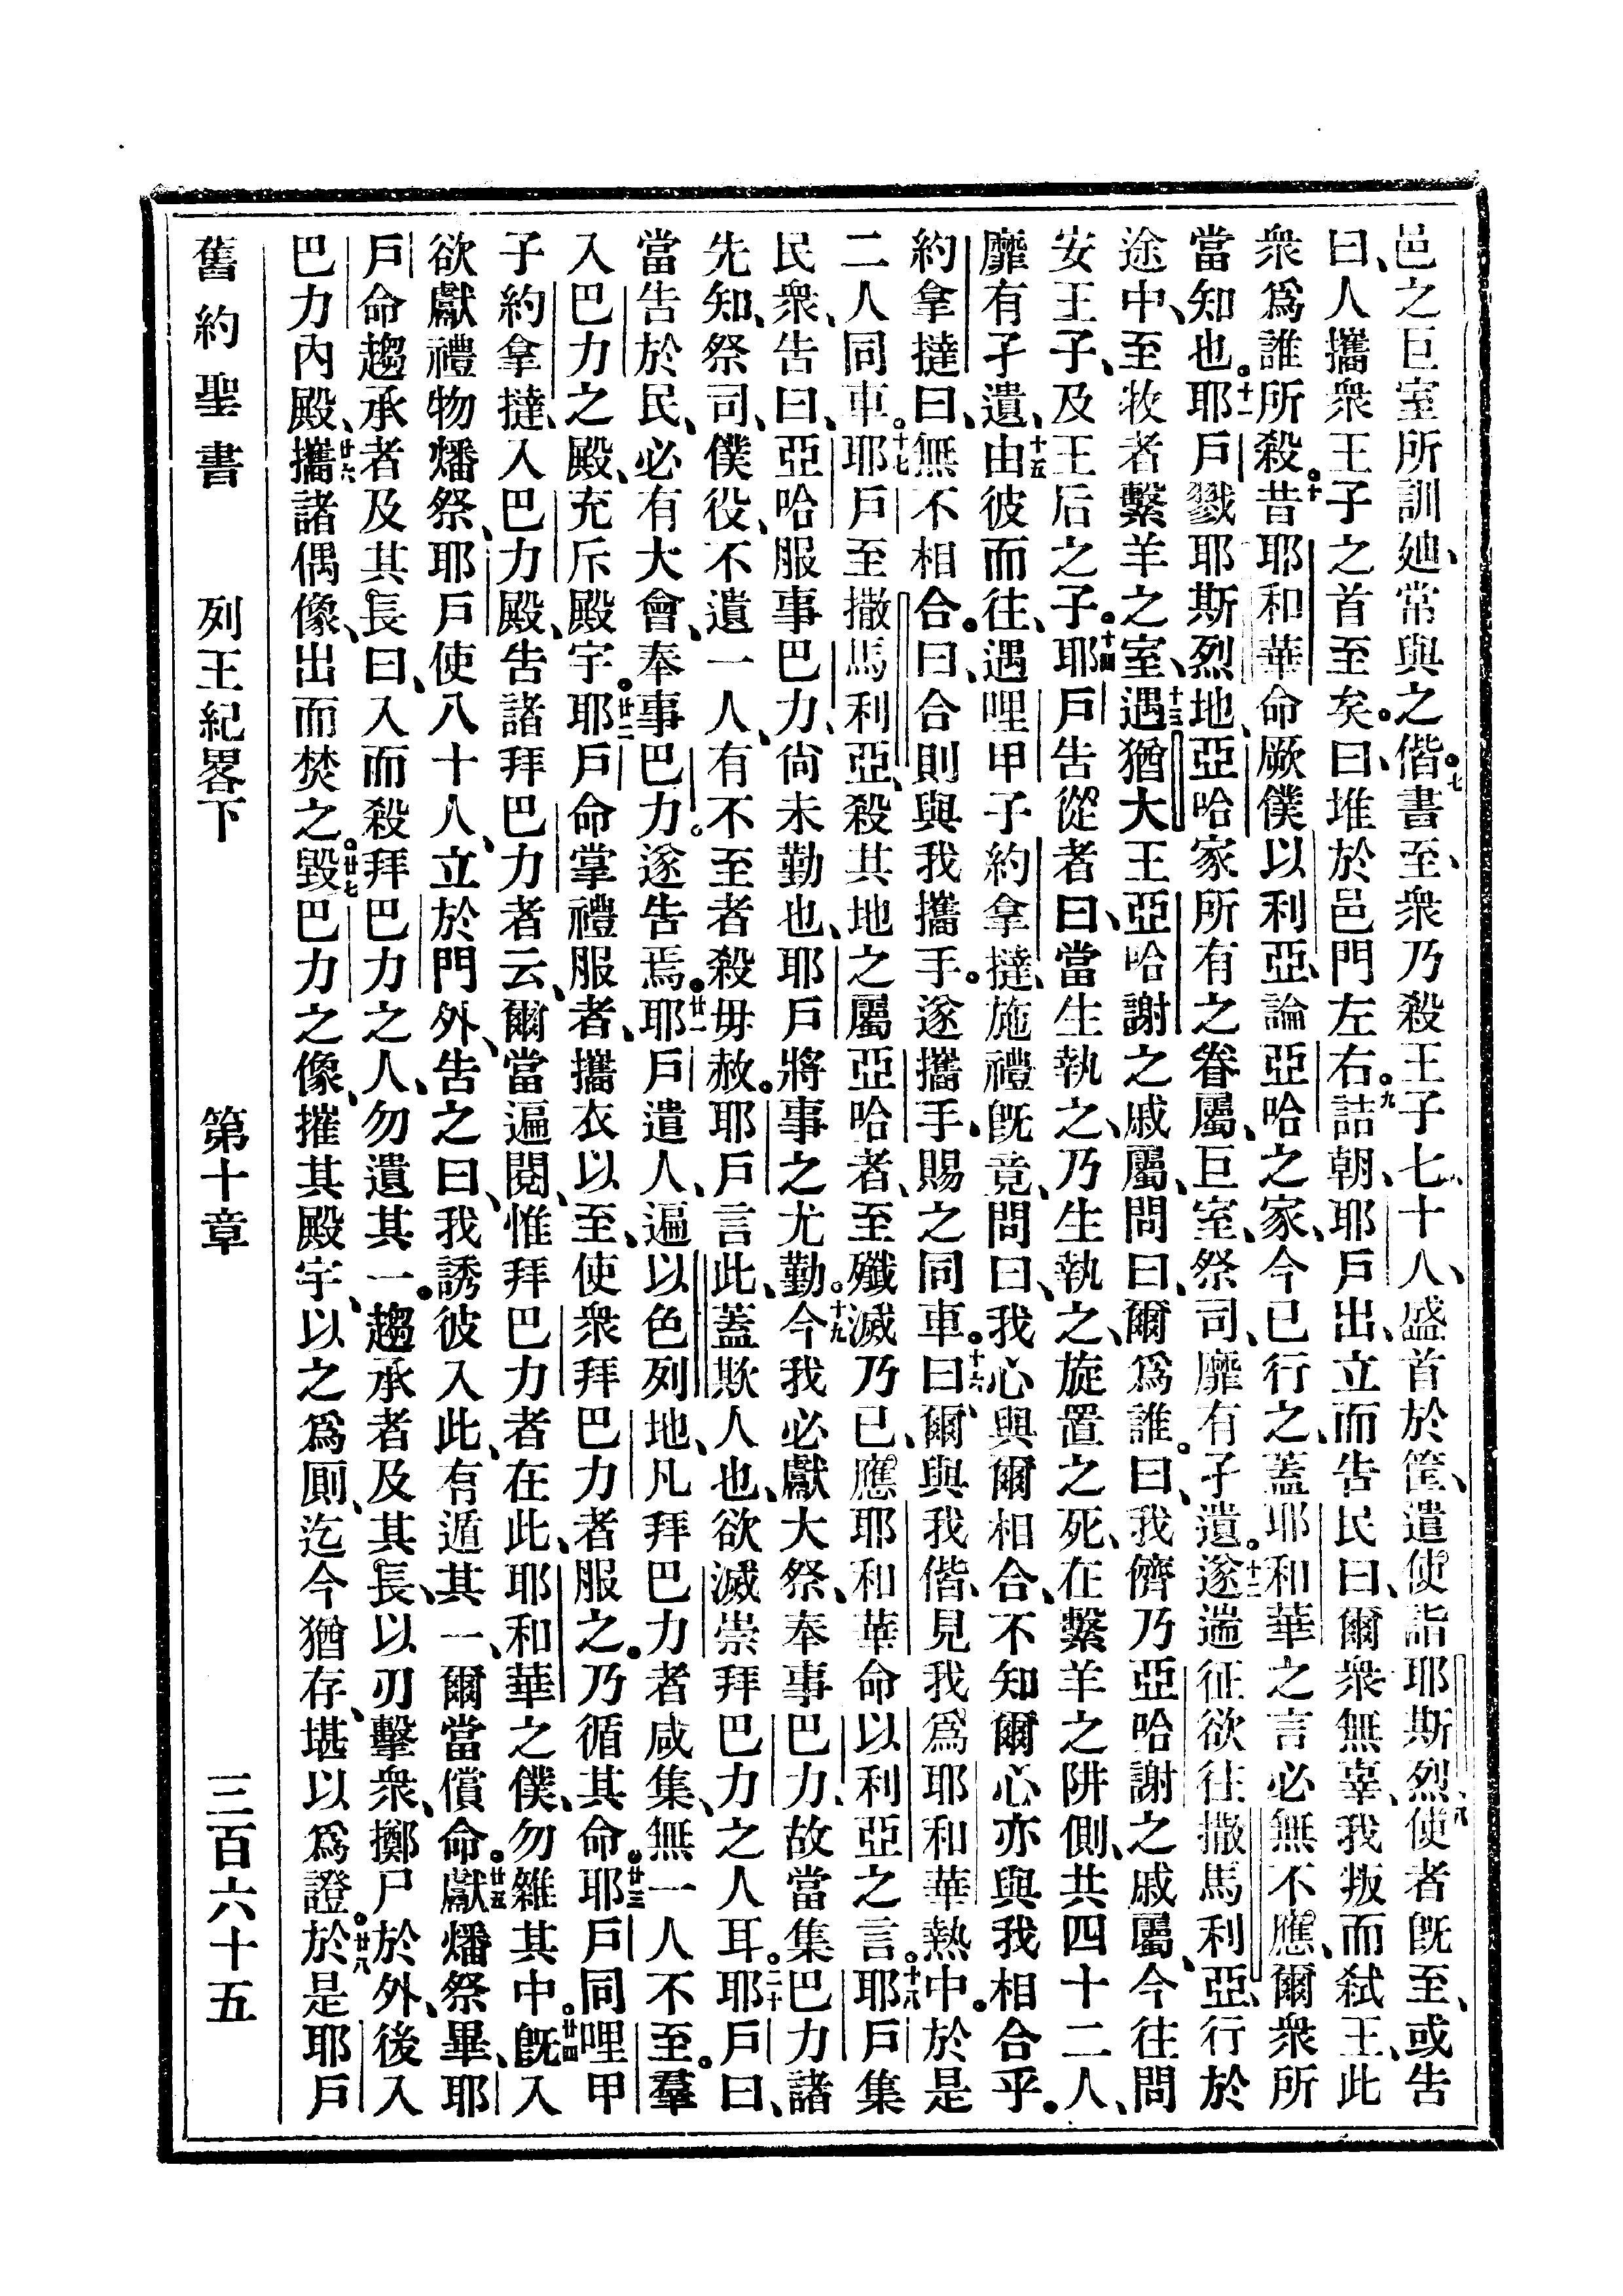 邑之巨室所訓廸、常與之偕。七書至、衆乃殺王子七十人、盛首於筐、遣使詣耶斯烈、八使者旣至、或告
曰、人攜衆王子之首至矣。曰、堆於邑門左右。九詰朝、耶戶出、立而告民曰、爾衆無辜、我叛而弒王、此
衆爲誰所殺。十昔耶和華命厥僕以利亞、論亞哈之家、今已行之、蓋耶和華之言必無不應、爾衆所
當知也。十一耶戶戮耶斯烈地、亞哈家所有之眷屬、巨室、祭司、靡有孑遺。十二遂遄征欲往撒馬利亞、行於
途中、至牧者繫羊之室、十三遇猶大王亞哈謝之戚屬、問曰、爾爲誰。曰、我儕乃亞哈謝之戚屬、今往問
安王子、及王后之子。十四耶戶告從者曰、當生執之、乃生執之、旋置之死、在繫羊之阱側、共四十二人、
靡有孑遺、十五由彼而往、遇哩甲子約拿撻、施禮旣竟、問曰、我心與爾相合、不知爾心亦與我相合乎。
約拿撻曰、無不相合。曰、合則與我攜手。遂攜手、賜之同車。十六曰、爾與我偕、見我爲耶和華熱中。於是
二人同車。十七耶戶至撒馬利亞、殺其地之屬亞哈者、至殲滅乃已、應耶和華命以利亞之言。十八耶戶集
民衆、告曰、亞哈服事巴力、尙未勤也、耶戶將事之尤勤。十九今我必獻大祭、奉事巴力、故當集巴力諸
先知、祭司、僕役、不遺一人、有不至者殺毋赦。耶戶言此、蓋欺人也、欲滅崇拜巴力之人耳。二十耶戶曰、
當告於民、必有大會、奉事巴力。遂告焉。廿一耶戶遣人、遍以色列地、凡拜巴力者咸集、無一人不至。羣
入巴力之殿、充斥殿宇。廿二耶戶命掌禮服者、攜衣以至、使衆拜巴力者服之。乃循其命。廿三耶戶同哩甲
子約拿撻、入巴力殿、告諸拜巴力者云、爾當遍閱、惟拜巴力者在此、耶和華之僕、勿雜其中。廿四旣入
欲獻禮物燔祭、耶戶使八十人、立於門外、告之曰、我誘彼入此、有遁其一、爾當償命。廿五獻燔祭畢、耶
戶命趨承者及其長曰、入而殺拜巴力之人、勿遺其一。趨承者及其長、以刃擊衆、擲尸於外、後入
巴力內殿、廿六攜諸偶像、出而焚之。廿七毀巴力之像、摧其殿宇、以之爲厠、迄今猶存、堪以爲證。廿八於是耶戶
舊約聖書 列王紀畧下 第十章 三百六十五